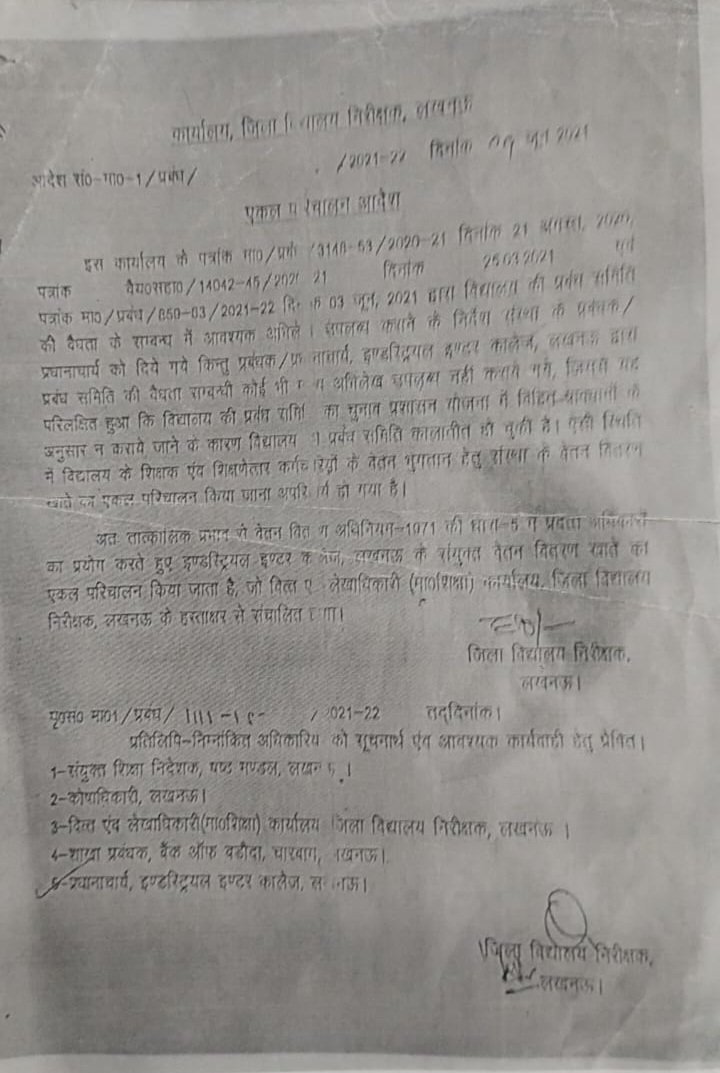 कार्यालय, जिला विद्यालय निरीक्षक, लखनऊ
आदेश सं०-मा०-1/प्रबंध/ /2021-22 दिनांक 09 जून 2021
एकल परिचालन आदेश
इस कार्यालय के पत्रांक मा०/प्रबंध/3148-53/2020-21 दिनांक 21 अगस्त, 2020,
पत्रांक वै०सहा०/14042-45/2020 21 दिनांक 25.03.2021 एवं
पत्रांक मा०/प्रबंध/850-03/2021-22 दिनांक 03 जून, 2021 द्वारा विद्यालय की प्रबंध समिति
की वैधता के सम्बन्ध में आवश्यक अभिलेख उपलब्ध कराने के निर्देश संस्था के प्रबंधक/
प्रधानाचार्य को दिये गये किन्तु प्रबंधक/प्रधानाचार्य, इण्डस्ट्रियल इण्टर कालेज, लखनऊ द्वारा
प्रबंध समिति की वैधता सम्बन्धी कोई भी अभिलेख उपलब्ध नहीं कराये गये, जिससे यह
परिलक्षित हुआ कि विद्यालय की प्रबंध समिति का चुनाव प्रशासन योजना में विहित प्रावधानों के
अनुसार न कराये जाने के कारण विद्यालय प्रबंध समिति कालातीत हो चुकी है। ऐसी स्थिति
में विद्यालय के शिक्षक एंव शिक्षणेत्तर कर्मचारियों के वेतन भुगतान हेतु संस्था के वेतन वितरण
खाते का एकल परिचालन किया जाना अपरिहार्य हो गया है।
अतः तात्कालिक प्रभाव से वेतन वितरण अधिनियम-1971 की धारा-5 में प्रदत्त अधिकारों
का प्रयोग करते हुए इण्डस्ट्रियल इण्टर कालेज, लखनऊ के संयुक्त वेतन वितरण खाते का
एकल परिचालन किया जाता है, जो वित्त एवं लेखाधिकारी (मा०शिक्षा) कार्यालय, जिला विद्यालय
निरीक्षक, लखनऊ के हस्ताक्षर से संचालित होगा।
जिला विद्यालय निरीक्षक,
लखनऊ।
पृ०सं० मा०1/प्रबंध/ /2021-22 तद्दिनांक।
प्रतिलिपि-निम्नांकित अधिकारियों को सूचनार्थ एंव आवश्यक कार्यवाही हेतु प्रेषित।
1-संयुक्त शिक्षा निदेशक, षष्ठ मण्डल, लखनऊ।
2-कोषाधिकारी, लखनऊ।
3-वित्त एंव लेखाधिकारी(मा०शिक्षा) कार्यालय जिला विद्यालय निरीक्षक, लखनऊ।
4-शाखा प्रबंधक, बैंक ऑफ बडौदा, चारबाग, लखनऊ।
5-प्रधानाचार्य, इण्डस्ट्रियल इण्टर कालेज, लखनऊ।
जिला विद्यालय निरीक्षक,
लखनऊ।